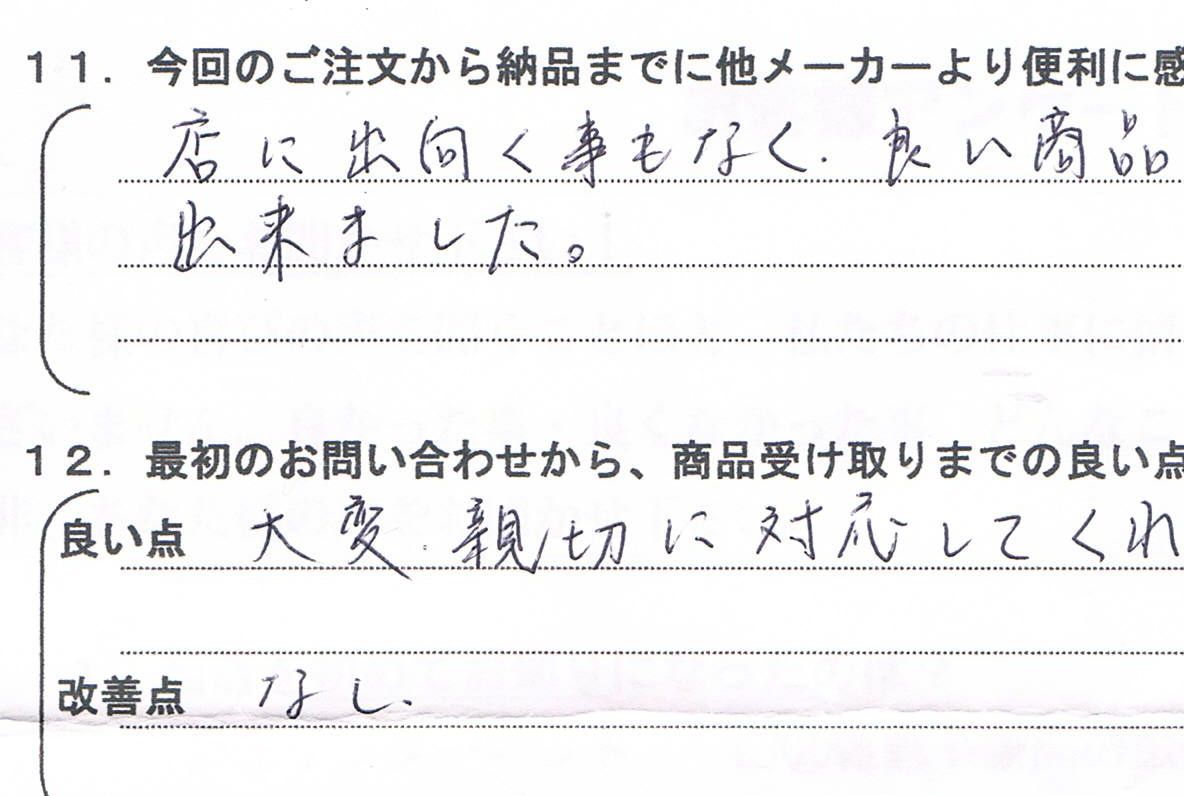 11．今回のご注文から納品までに他メーカーより便利に感
店に出向く事もなく．良い商品
出来ました。
12．最初のお問い合わせから、商品受け取りまでの良い点
良い点 大変．親切に対応してくれ
改善点 なし．